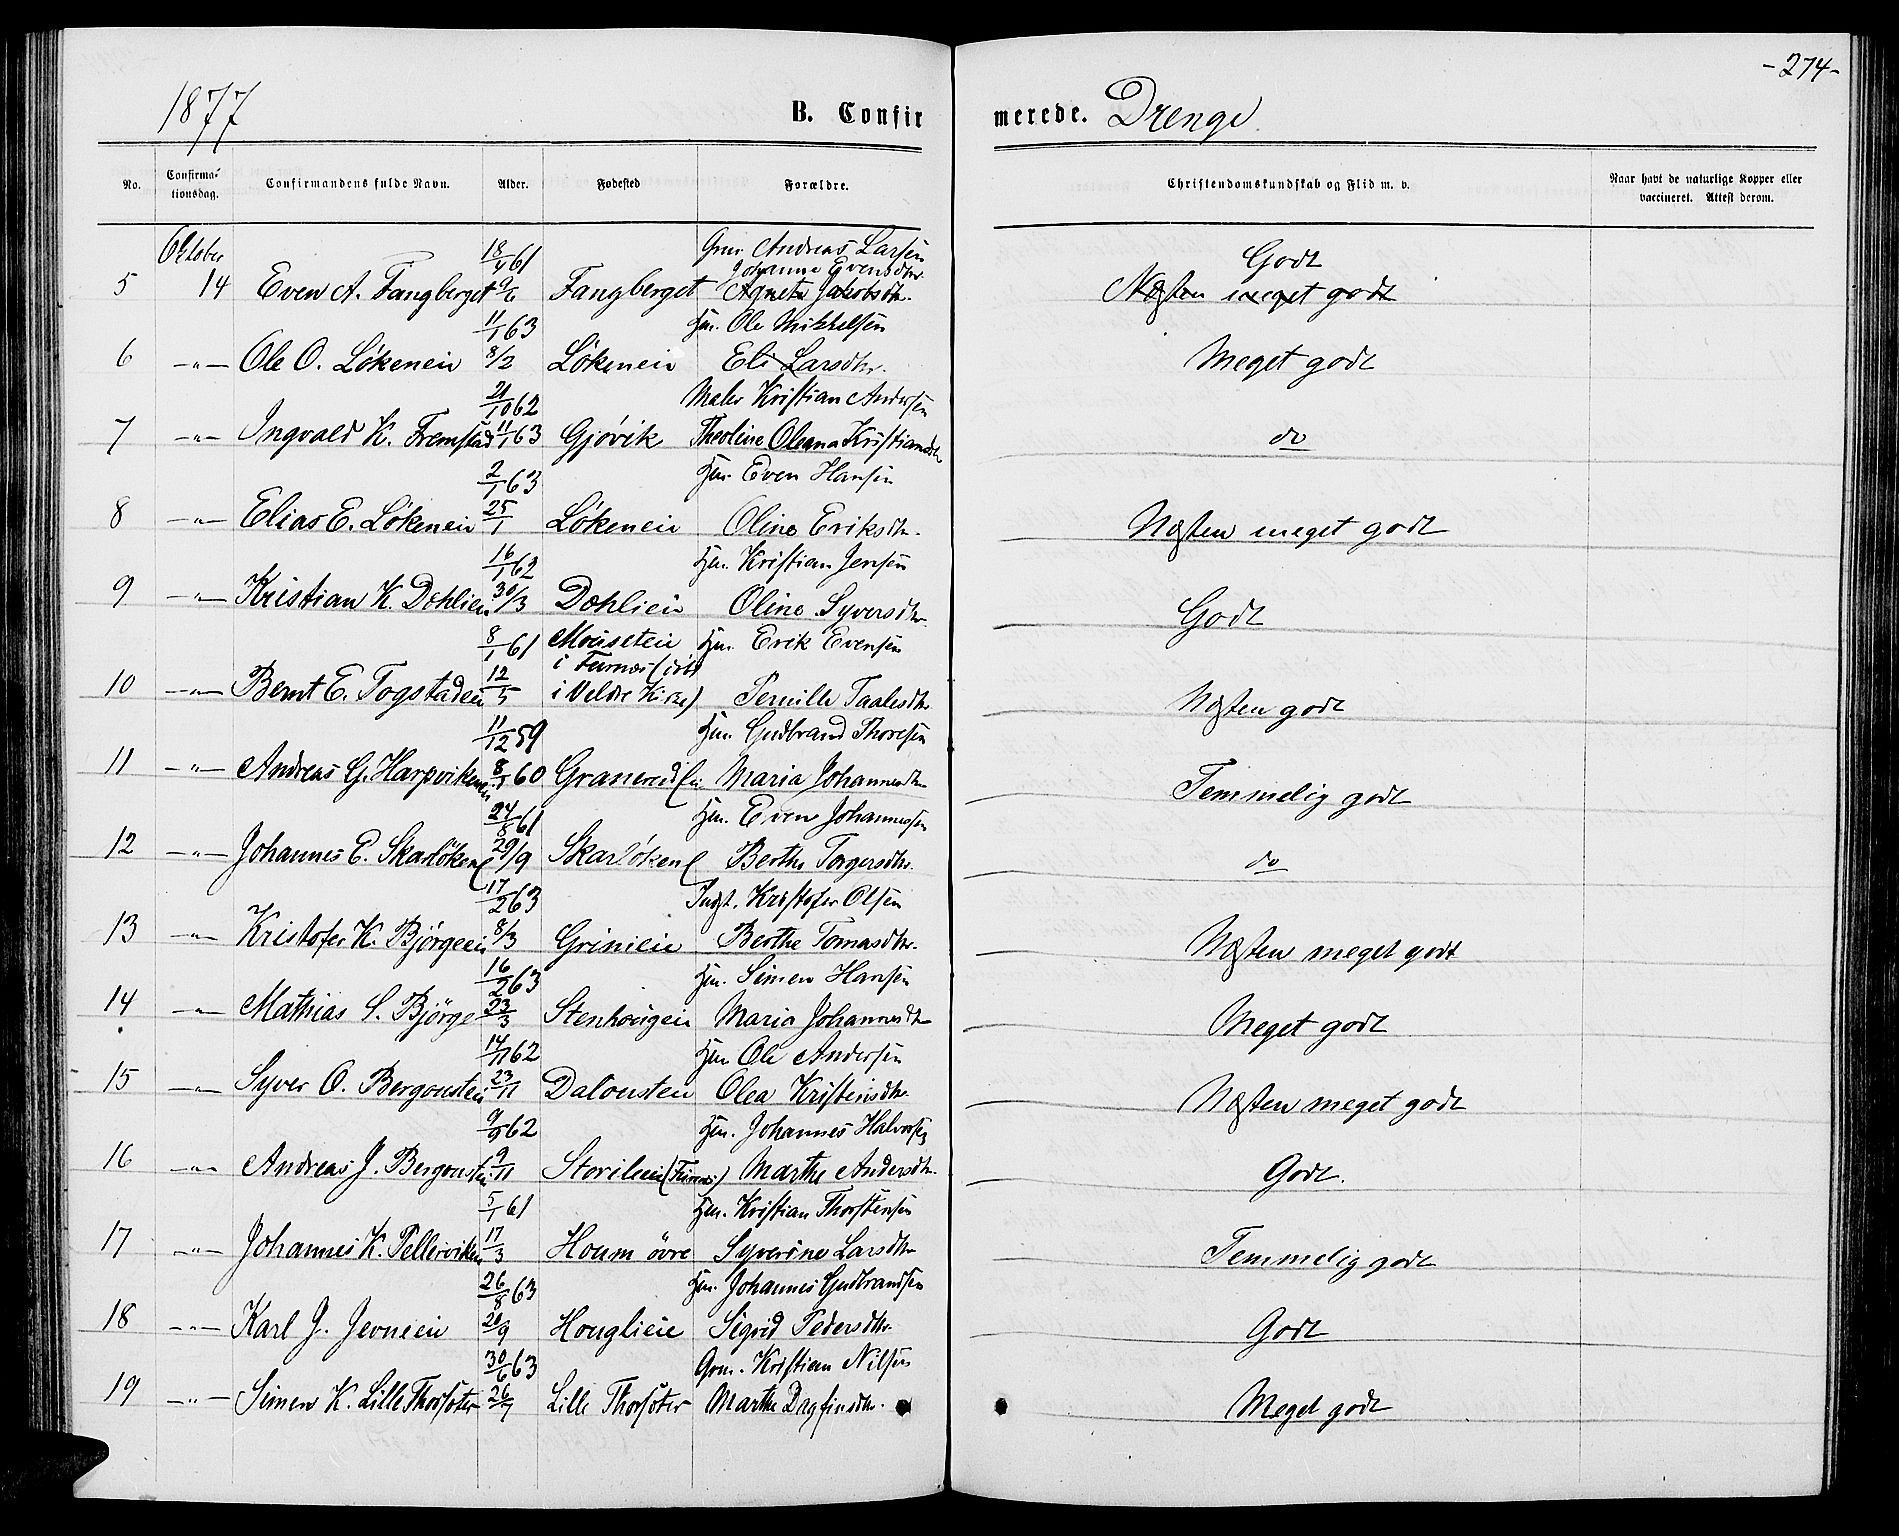 -274-
1877 B. Confirmerede. Drenge
No. Confirmationsdag. Confirmandens fulde Navn. Alder. Fødested Forældre. Christendomskundskab og Flid m. v. Naar havt de naturlige Kopper eller vaccineret. Attest derom.
Oktober 18/4 61 Gmr. Andreas Larsen Godt
Johanne Evensdtr.
5 14 Even A. Fangberget 9/6 Fangberget Agnete Jakobsdtr. Næsten meget godt
11/1 63 Hm. Ole Mikkelsen
6 -"- Ole O. Lökeneie 8/2 Lökeneie Eli Larsdtr. Meget godt
21/10 62 Maler Kristian Andersen
7 -"- Ingvald K. Fremstad 11/1 63 Gjövik Theoline Oleana Kristiansdtr do
2/1 63 Hm. Even Hansen
8 -"- Elias E. Lökeneie 25/1 Lökeneie Oline Eriksdtr. Næsten meget godt
16/1 62 Hm. Kristian Jensen
9 -"- Kristian K. Dæhlien 30/3 Dæhlieie Oline Syversdtr. Godt
8/1 61 Hm. Erik Evensen
i Furnæs (döbt
10 -"- Bernt E. Togstadeie 12/5 i Veldre Kirke) Pernille Taalesdtr Næsten godt
11/12 59 Hm. Gudbrand Thoresen
11 -"- Andreas G. Harpvikeneie 8/1 60 Granerud Maria Johannesdtr Temmelig godt
24/8 61 Hm. Even Johannesen
12 -"- Johannes E. Skarlöken 29/9 Skarlöken Berthe Torgersdtr. do
17/2 63 Kristofer Olsen
13 -"- Kristofer K. Björgeeie 8/3 Grinieie Berthe Tomasdtr. Næsten meget godt
16/2 63 Hm. Simen Hansen
14 -"- Mathias S. Björge 23/3 Stenhougeie Maria Johannesdtr Meget godt
14/11 62 Hm. Ole Andersen
15 -"- Syver O. Bergousteie 23/11 Dalousten Olea Kristensdtr. Næsten meget godt
9/9 62 Hm. Johannes Halvorsen
16 -"- Andreas J. Bergousteie 9/11 Storilieie (Furnæs) Marthe Andersdtr. Godt.
5/1 61 Hm. Kristian Thorstensen
17 -"- Johannes K. Pellerviken 17/3 Houm övre Syverine Larsdtr Temmelig godt
26/8 63 Hm. Johannes Gudbrandsen
18 -"- Karl J. Jevneeie 20/9 Houglieie Sigrid Pedersdtr. Godt
30/6 63 Gmr. Kristian Nilsen
19 -"- Simen K. Lille Thorsöter 26/7 Lille Thorsöter Marthe Dagfinsdtr. Meget godt